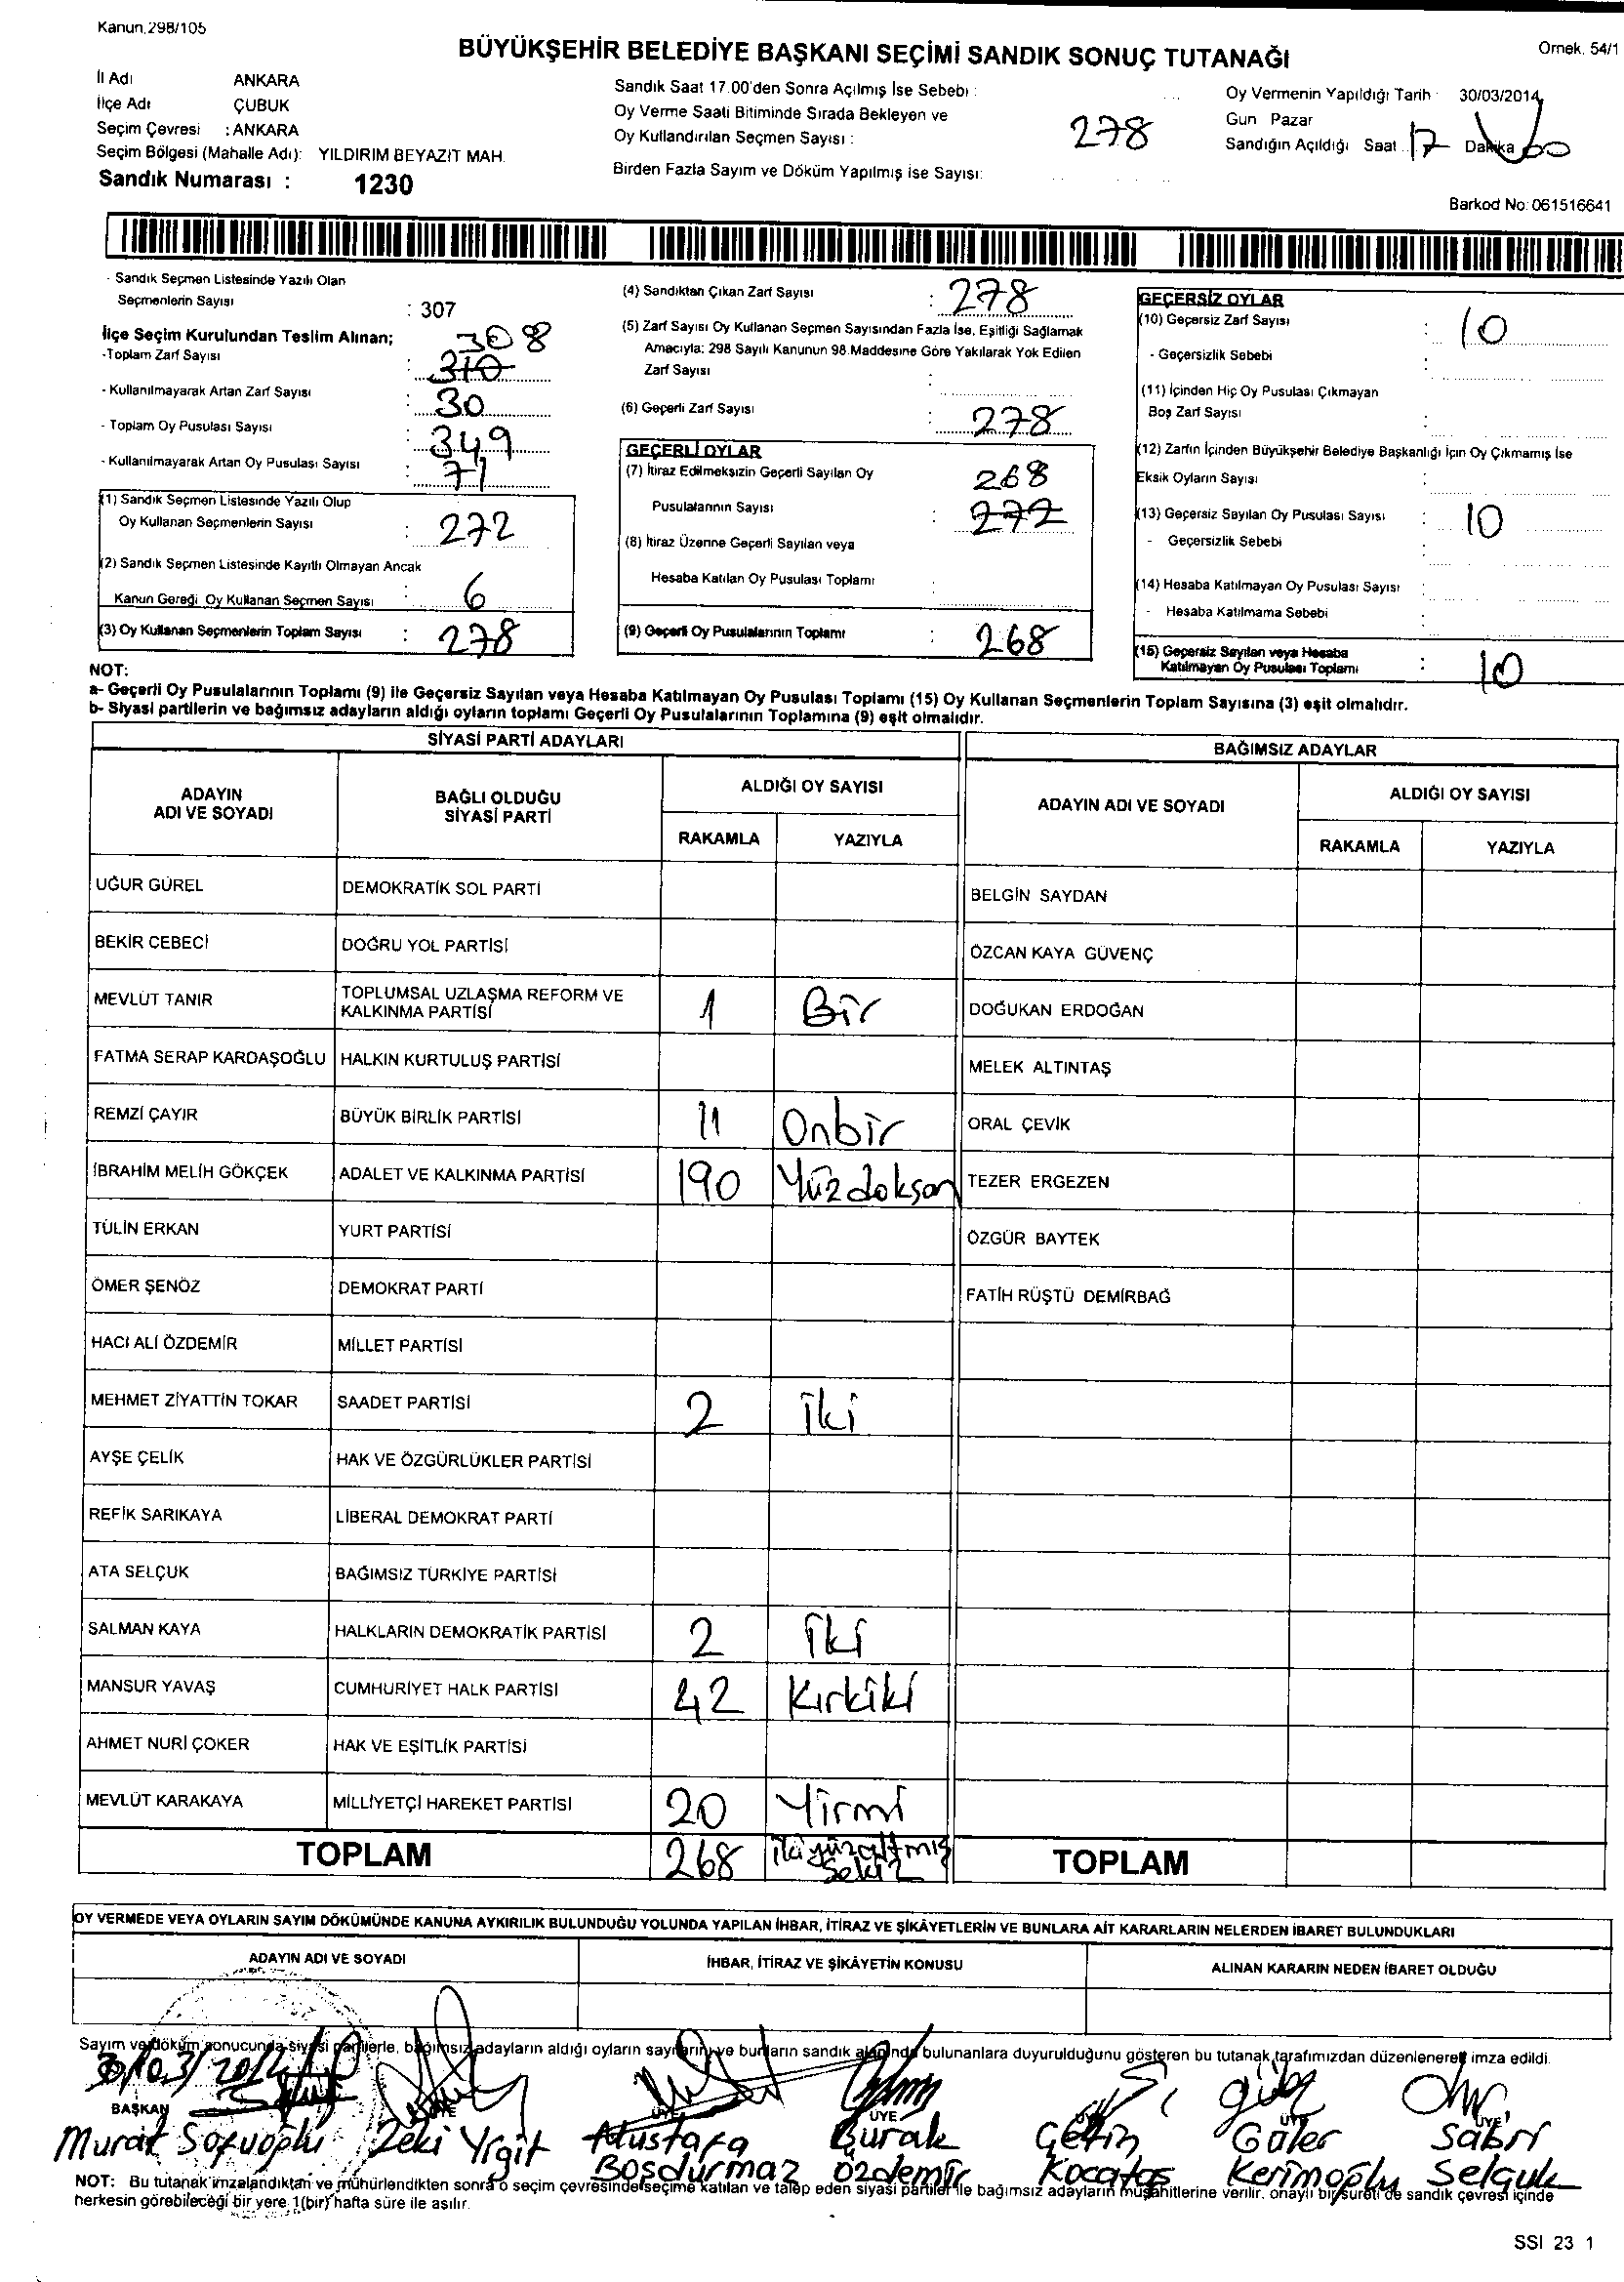 Kanun.298/105
BÜYÜKŞEHİR BELEDİYE BAŞKANI SEÇİMİ SANDIK SONUÇ TUTANAĞI
Ornek. 54/1
İl Adı ANKARA
İlçe Adı ÇUBUK
Seçim Çevresi : ANKARA
Seçim Bölgesi (Mahalle Adı): YILDIRIM BEYAZIT MAH.
Sandık Numarası : 1230
Sandık Saat 17.00'den Sonra Açılmış İse Sebebi :
Oy Verme Saati Bitiminde Sırada Bekleyen ve
Oy Kullandırılan Seçmen Sayısı : 278
Birden Fazla Sayım ve Döküm Yapılmış ise Sayısı:
Oy Vermenin Yapıldığı Tarih : 30/03/2014
Gun Pazar
Sandığın Açıldığı Saat 17 Dakika 00
Barkod No: 061516641
- Sandık Seçmen Listesinde Yazılı Olan
Seçmenlerin Sayısı : 307
İlçe Seçim Kurulundan Teslim Alınan; 308
-Toplam Zarf Sayısı : 310
- Kullanılmayarak Artan Zarf Sayısı : 30
- Toplam Oy Pusulası Sayısı : 349
- Kullanılmayarak Artan Oy Pusulası Sayısı : 71
(1) Sandık Seçmen Listesinde Yazılı Olup
Oy Kullanan Seçmenlerin Sayısı : 272
(2) Sandık Seçmen Listesinde Kayıtlı Olmayan Ancak
Kanun Gereği Oy Kullanan Seçmen Sayısı : 6
(3) Oy Kullanan Seçmenlerin Toplam Sayısı : 278
(4) Sandıktan Çıkan Zarf Sayısı : 278
(5) Zarf Sayısı Oy Kullanan Seçmen Sayısından Fazla İse, Eşitliği Sağlamak
Amacıyla; 298 Sayılı Kanunun 98.Maddesine Göre Yakılarak Yok Edilen
Zarf Sayısı :
(6) Geçerli Zarf Sayısı : 278
GEÇERLİ OYLAR
(7) İtiraz Edilmeksizin Geçerli Sayılan Oy 268
Pusulalarının Sayısı : 272
(8) İtiraz Üzerine Geçerli Sayılan veya
Hesaba Katılan Oy Pusulası Toplamı :
(9) Geçerli Oy Pusulalarının Toplamı : 268
GEÇERSİZ OYLAR
(10) Geçersiz Zarf Sayısı : 10
- Geçersizlik Sebebi :
(11) İçinden Hiç Oy Pusulası Çıkmayan
Boş Zarf Sayısı :
(12) Zarfın İçinden Büyükşehir Belediye Başkanlığı İçin Oy Çıkmamış İse
Eksik Oyların Sayısı :
(13) Geçersiz Sayılan Oy Pusulası Sayısı : 10
- Geçersizlik Sebebi :
(14) Hesaba Katılmayan Oy Pusulası Sayısı :
- Hesaba Katılmama Sebebi :
(15) Geçersiz Sayılan veya Hesaba
Katılmayan Oy Pusulası Toplamı : 10
NOT:
a- Geçerli Oy Pusulalarının Toplamı (9) ile Geçersiz Sayılan veya Hesaba Katılmayan Oy Pusulası Toplamı (15) Oy Kullanan Seçmenlerin Toplam Sayısına (3) eşit olmalıdır.
b- Siyasi partilerin ve bağımsız adayların aldığı oyların toplamı Geçerli Oy Pusulalarının Toplamına (9) eşit olmalıdır.
SİYASİ PARTİ ADAYLARI
BAĞIMSIZ ADAYLAR
ADAYIN ADI VE SOYADI
BAĞLI OLDUĞU SİYASİ PARTİ
ALDIĞI OY SAYISI
RAKAMLA YAZIYLA
ADAYIN ADI VE SOYADI
ALDIĞI OY SAYISI
RAKAMLA YAZIYLA
UĞUR GÜREL DEMOKRATİK SOL PARTİ BELGİN SAYDAN
BEKİR CEBECİ DOĞRU YOL PARTİSİ ÖZCAN KAYA GÜVENÇ
MEVLÜT TANIR TOPLUMSAL UZLAŞMA REFORM VE KALKINMA PARTİSİ 1 Bir DOĞUKAN ERDOĞAN
FATMA SERAP KARDAŞOĞLU HALKIN KURTULUŞ PARTİSİ MELEK ALTINTAŞ
REMZİ ÇAYIR BÜYÜK BİRLİK PARTİSİ 11 Onbir ORAL ÇEVİK
İBRAHİM MELİH GÖKÇEK ADALET VE KALKINMA PARTİSİ 190 Yüzdoksan TEZER ERGEZEN
TÜLİN ERKAN YURT PARTİSİ ÖZGÜR BAYTEK
ÖMER ŞENÖZ DEMOKRAT PARTİ FATİH RÜŞTÜ DEMİRBAĞ
HACI ALİ ÖZDEMİR MİLLET PARTİSİ
MEHMET ZİYATTİN TOKAR SAADET PARTİSİ 2 İki
AYŞE ÇELİK HAK VE ÖZGÜRLÜKLER PARTİSİ
REFİK SARIKAYA LİBERAL DEMOKRAT PARTİ
ATA SELÇUK BAĞIMSIZ TÜRKİYE PARTİSİ
SALMAN KAYA HALKLARIN DEMOKRATİK PARTİSİ 2 İki
MANSUR YAVAŞ CUMHURİYET HALK PARTİSİ 42 Kırkiki
AHMET NURİ ÇOKER HAK VE EŞİTLİK PARTİSİ
MEVLÜT KARAKAYA MİLLİYETÇİ HAREKET PARTİSİ 20 Yirmi
TOPLAM 268 İkiyüzaltmış Sekiz TOPLAM
OY VERMEDE VEYA OYLARIN SAYIM DÖKÜMÜNDE KANUNA AYKIRILIK BULUNDUĞU YOLUNDA YAPILAN İHBAR, İTİRAZ VE ŞİKÂYETLERİN VE BUNLARA AİT KARARLARIN NELERDEN İBARET BULUNDUKLARI
ADAYIN ADI VE SOYADI İHBAR, İTİRAZ VE ŞİKÂYETİN KONUSU ALINAN KARARIN NEDEN İBARET OLDUĞU
Sayım ve döküm sonucunda siyasi partilerle, bağımsız adayların aldığı oyların sayılarını ve bunların sandık alanında bulunanlara duyurulduğunu gösteren bu tutanak tarafımızdan düzenlenerek imza edildi.
30/03/2014
BAŞKAN ÜYE ÜYE ÜYE ÜYE ÜYE
Murat Sofuoğlu Zeki Yigit Mustafa Burak Çetin Güler Sabri
Bosdurmaz Özdemir Kocataş Kerimoğlu Selçuk
NOT: Bu tutanak imzalandıktan ve mühürlendikten sonra o seçim çevresinde seçime katılan ve talep eden siyasi partiler ile bağımsız adayların müşahitlerine verilir. onaylı bir sureti de sandık çevresi içinde
herkesin görebileceği bir yere 1(bir) hafta süre ile asılır.
SSI 23 1